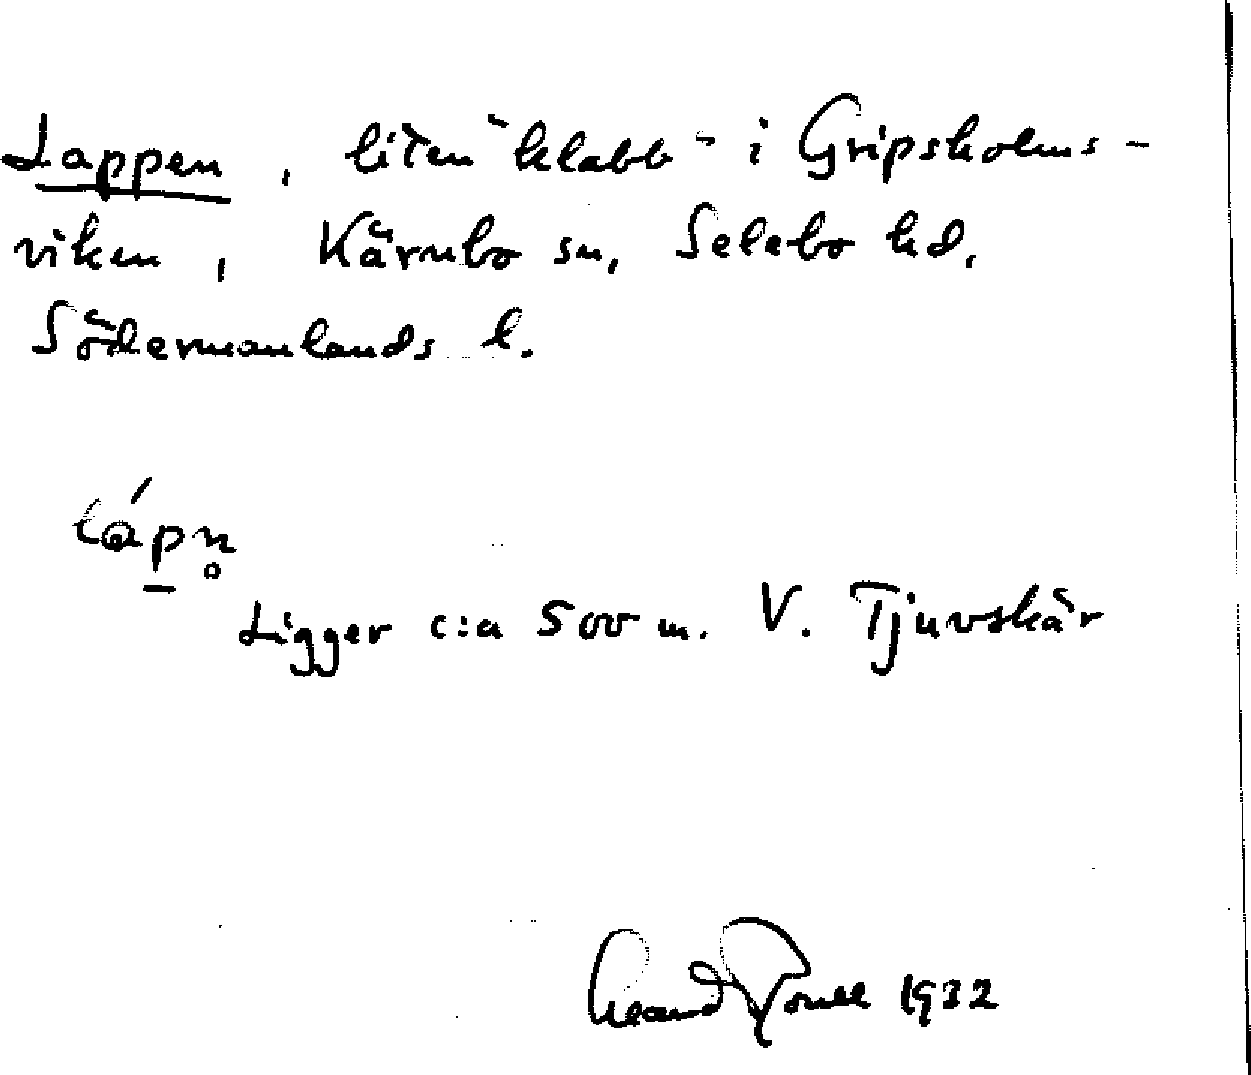 Lappen, liten "klabb" i Gripsholms-
viken, Kärnbo sn, Selebo hd.
Södermanlands l.
Ligger c:a 500 m. V. Tjuvskär
1932